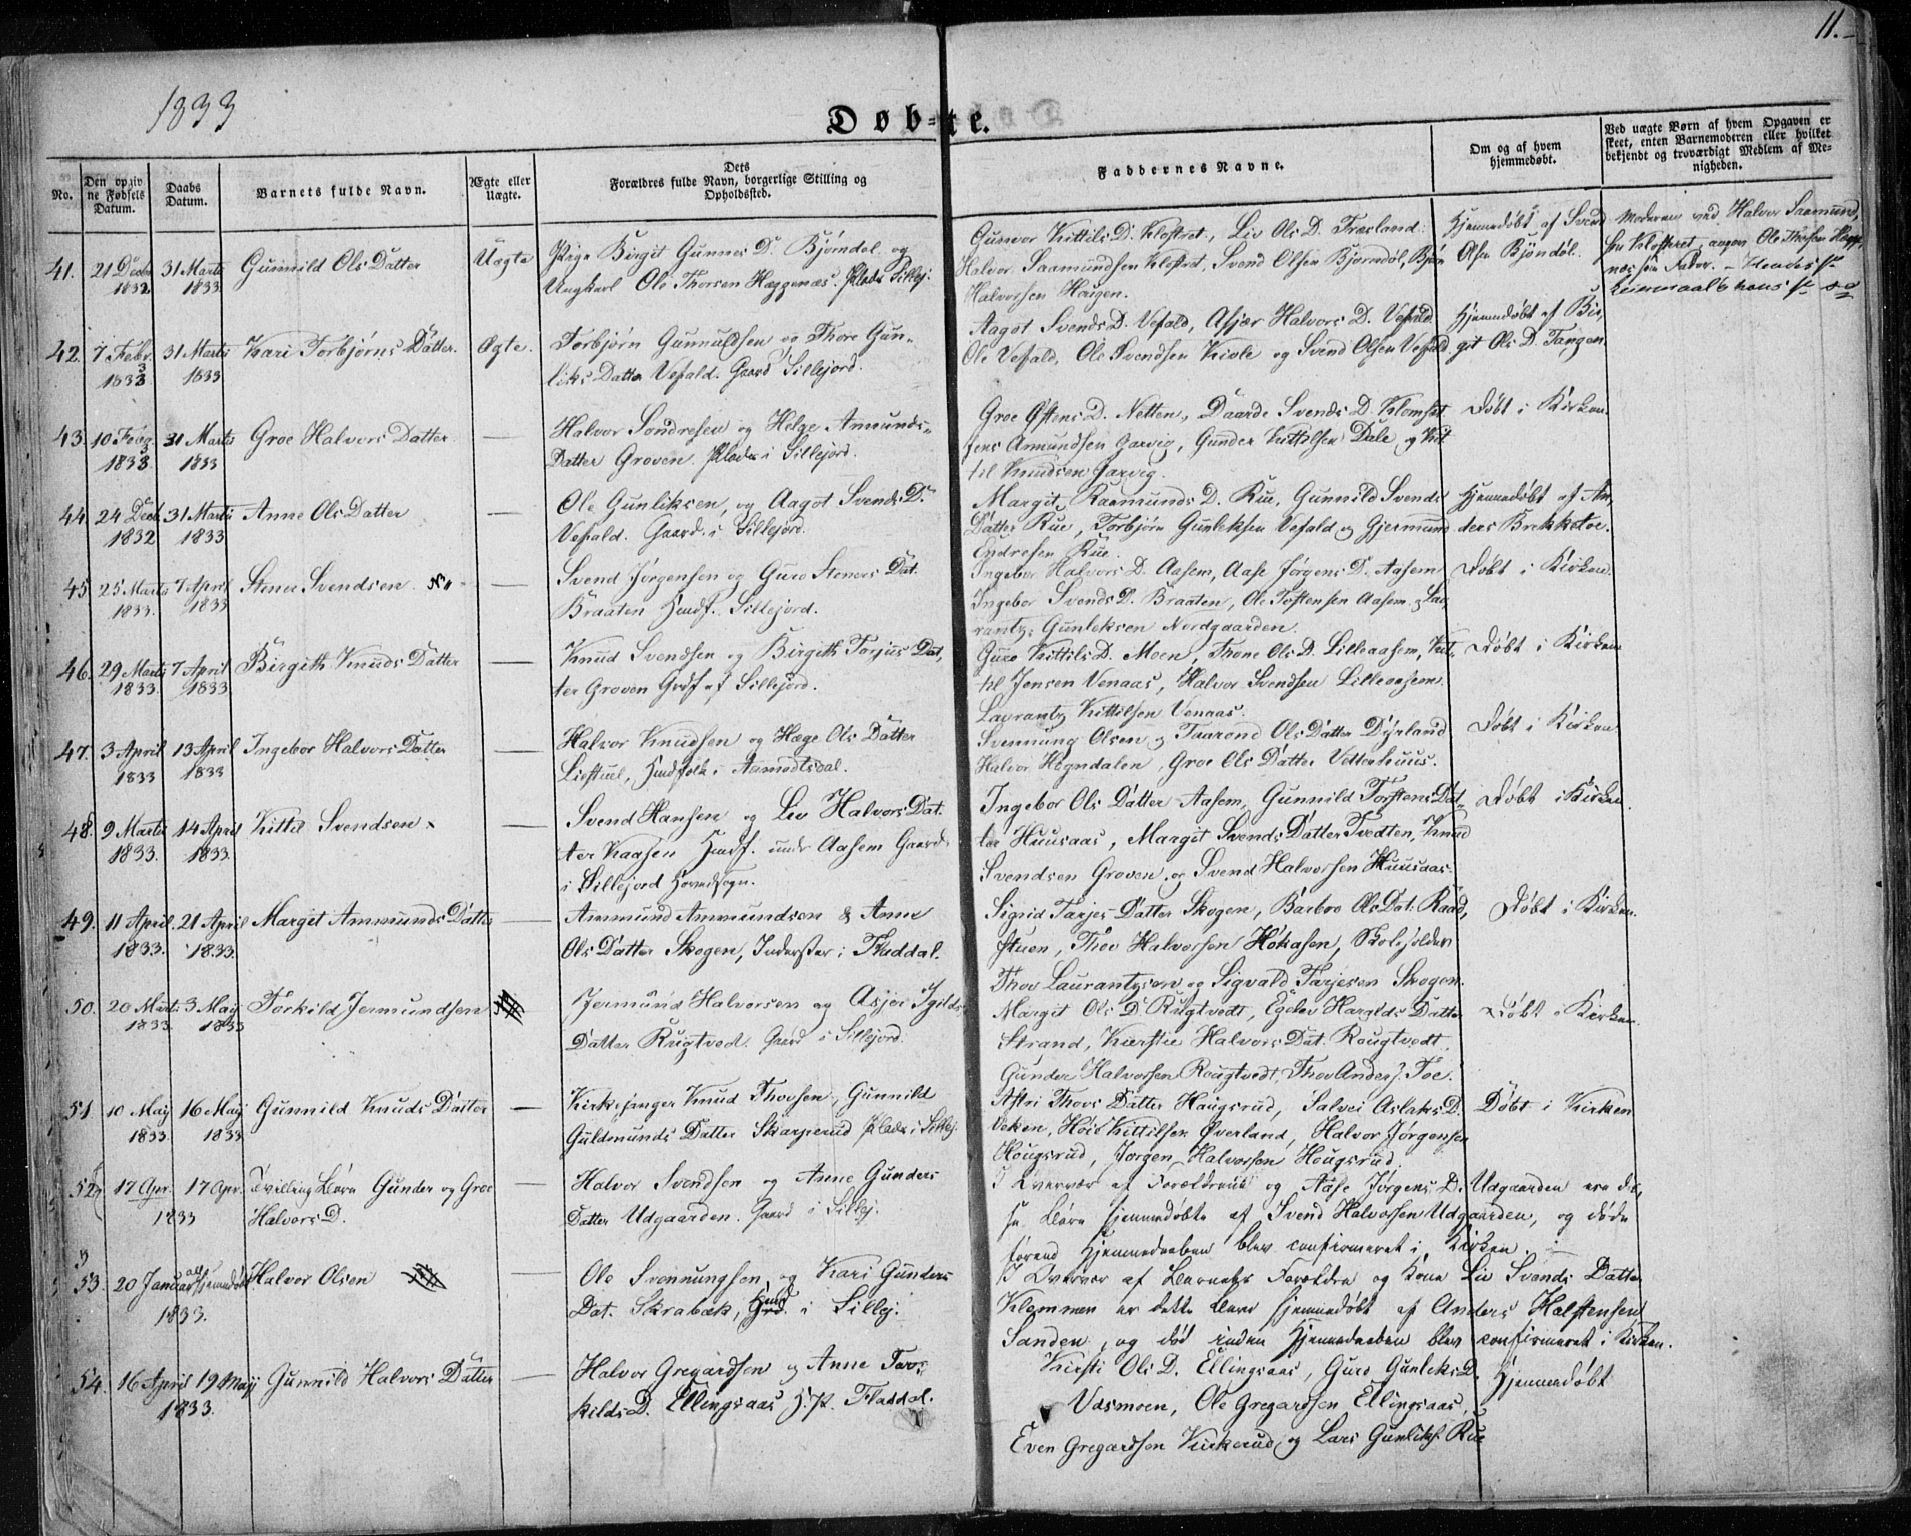 11.
1833
Døbte.
No.
Den opgivne Fødsels Datum.
Daabs Datum.
Barnets fulde Navn.
Ægte eller Uægte.
Dets Forældres fulde Navn, borgerlige Stilling og Opholdssted.
Faddernes Navne.
Om og af hvem hjemmedøbt.
Ved uægte Børn af hvem Opgaven er skeet, enten Barnemoderen eller hvilket bekjendt og troværdigt Medlem af Menigheden.
41. 21 Decbr 1832 31 Marts 1833 Gunnild Ols Datter Uægte
Pige Birgit Gunnes D. Bjøndal og
Ungkarl Ole Thorsen Hæggenæs. Pladr Sillej.
Gunvor Kittils D. Klostret, Liv Ols D. Træsland
Halvor Saamundsen Klostret, Svend Olsen Bjørndøl, Bjørn
Halvorsen Haugen.
Hjemmedøbt af Svend
Olsen Bjøndøl.
Moderen ved Halvor Saamund,
sen Klosteret, angen Ole Thorsen Hægge,
næs som Fader. - Hendes 1ste
hans 1ste
42. 7 Febr. 1833 31 Marts 1833 Kari Torbjørns Datter. Ægte.
Torbjørn Gunnuldsen og Thore Gun-
liks Datter Vefald. Gaard Sillejord.
Aagot Svends D. Vefald, Asjær Halvors D. Vefald
Ole Vefald, Ole Svendsen Kivle og Svend Olsen Vefald
Hjemmedøbt af Bir,
git Ols D. Tangen.
43. 10 Febr 1833 31 Marts 1833 Groe Halvors Datter —
Halvor Sondresen og Helge Amunds-
Datter Groven. Pladr i Sillejord.
Groe Østens D. Netten, Daarde Svends D. Klomset
Jens Amundsen Garvig, Gunder Kittilsen Dale og Kit
til Knudsen Garvig.
Døbt i Kirken
44. 24 Decb 1832 31 Marts 1833 Anne Ols Datter —
Ole Gunliksen, og Aagot Svends D.
Vefald. Gaard. i Sillejord.
Margit Raamunds D. Rue, Gunnild Svends
Datter Rue, Torbjørn Gunleksen Vefald og Gjermund
Endresen Rue.
Hjemmedøbt af An,
ders Brekketoe.
45. 25 Marts 1833. 7 April 1833 Stener Svendsen —
Svend Jørgensen og Guro Steners Dat.
Braaten Huusf. Sillejord.
Ingebor Halvors D. Aasem, Aase Jørgens D. Aasem
Ingebor Svends D. Braaten, Ole Tostensen Aasem, Lau,
rantz Gunleksen Nordgaarden.
Døbt i Kirken.
46. 29 Marts 1833. 7 April 1833 Birgith Knuds Datter —
Knud Svendsen og Birgith Torjus Dat,
ter Groven Grdf af Sillejord.
Guro Kittils D. Moen, Thone Ols D. Lilleaasem, Kit,
til Jensen Venaas, Halvor Svendsen Lilleaasem
Laurantz Kittilsen Venaas.
Døbt i Kirken
47. 3 April 1833 13 April 1833 Ingebor Halvors Datter —
Halvor Knudsen og Hæge Ols Datter
Liestuel, Huusfolk i Aamodtsdal.
Svennung Olsen og Taarond Ols Datter Dyrland
Halvor Høgndalen, Groe Ols Datter Vetterhuus.
Døbt i Kirken
48. 9 Marts 1833. 14 April 1833. Kittil Svendsen —
Svend Hansen og Liv Halvors Dat.
ter Kaasen Huusf. under Aasem Gaard
i Sillejord Hovedsogn.
Ingebor Ols Datter Aasem, Gunnild Torstens Dat-
ter Huusaas, Margit Svends Datter Tvedten, Knud
Svendsen Groven og Svend Halvorsen Huusaas.
Døbt i Kirken
49. 11 April. 1833. 21 April 1833. Margit Ammunds Datter —
Ammund Ammundsen & Anne
Ols Datter Skogen, Inderster i Fladdal.
Sigrid Tarjes Datter Skogen, Barbro Ols Dat. Raad,
stuen, Thov Halvorsen Høkasen, Skoleholder
Thov Laurantzsen og Sigvald Tarjesen Skogen.
Døbt i Kirken.
50. 20 Marts 1833. 3 May 1833 Torkild Jermundsen
Jermund Halvorsen og Asjer Igilds
Datter Rugtved. Gaard i Sillejord.
Margit Ols D. Rugtvedt, Egelev Haralds Datter
Strand, Kierstie Halvors Dat. Rougtvedt.
Gunder Halvorsen Rougtvedt, Thov Anders. Toe.
Døbt i Kirken.
51 10 May 1833. 16 May 1833 Gunnild Knuds Datter —
Kirkesanger Knud Thovsen, Gunnild
Guldmunds Datter Skarperud Pladr i Sillej.
Astri Thovs Datter Haugsrud, Salvei Aslaks D.
Veken, Hoie Kittilsen Øverland, Halvor Jørgensen
Hougsrud, Jørgen Halvorsen Hougsrud.
Døbt i Kirken
52. 17 Apr. 17 Apr. 1833 Tvilling Børn Gunder og Groe —
Halvors D.
Halvor Svendsen og Anne Gunders
Datter Udgaarden. Gaard i Sillej.
I Overvær af Forældrene og Aase Jørgens D. Udgaarden ere dis,
se Børn hjemmedøbte af Svend Halvorsen Udgaarden, og døde
førend Hjemmedaaben blev confirmeret i Kirken.
53. 20 Januar 1833. hjemmedøbt Halvor Olsen —
Ole Svennungsen og Kari Gunders
Dat. Skrabæk, Huusf. i Sillej.
I Overvær af Barnets Forældre og Kone Liv Svends Datter
Klemmen er dette Barn hjemmedøbt af Anders Halstensen
Sanden, og død inden Hjemmedaaben blev confirmeret i Kirken.
54. 16 April 1833. 19 Maji Gunnild Halvors Datter —
Halvor Gregardsen og Anne Tor-
kilds D. Ellingsaas, Fladdal.
Kiersti Ols D. Ellingsaas, Guro Gunleks D.
Vasmoen, Ole Gregardsen Ellingsaas,
Even Gregardsen Kirkerud og Lars Gunliks. Rue
Hjemmedøbt